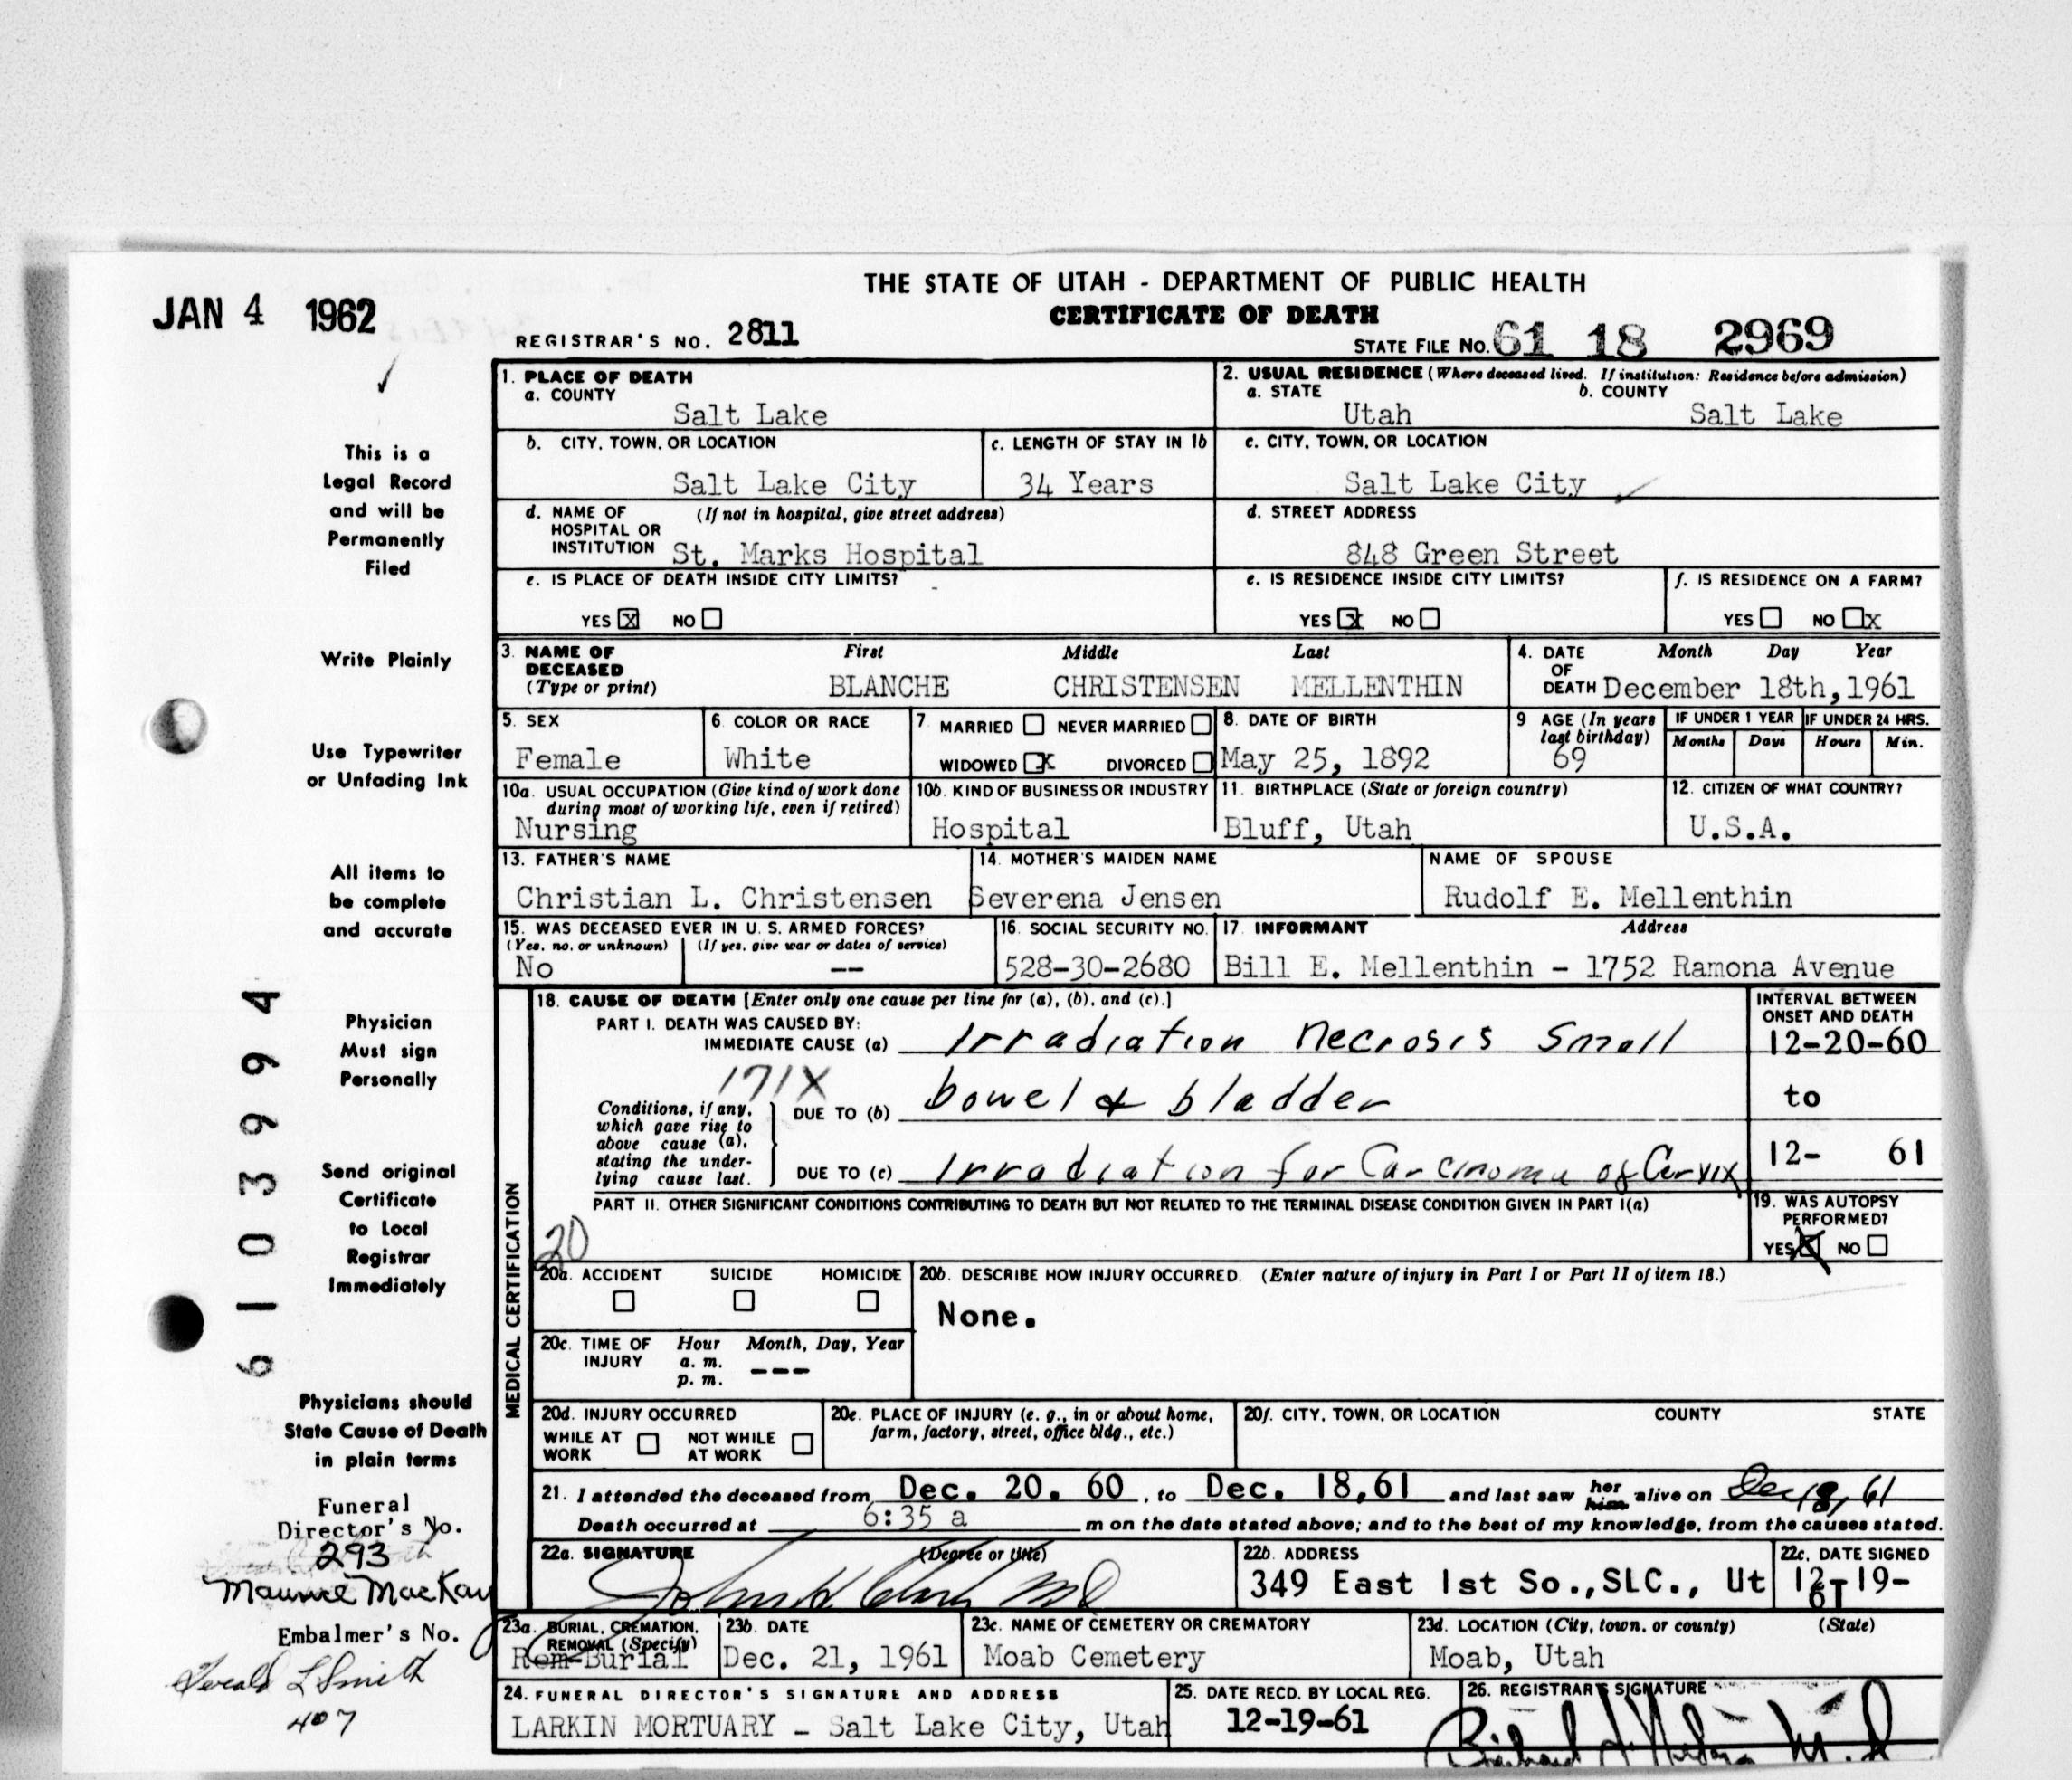 THE STATE OF UTAH - DEPARTMENT OF PUBLIC HEALTH
JAN 4 1962
CERTIFICATE OF DEATH
REGISTRAR'S NO. 2811
STATE FILE No. 61 18 2969
1. PLACE OF DEATH
a. COUNTY
Salt Lake
2. USUAL RESIDENCE (Where deceased lived. If institution: Residence before admission)
a. STATE b. COUNTY
Utah Salt Lake
b. CITY, TOWN, OR LOCATION
Salt Lake City
c. LENGTH OF STAY IN 1b
34 Years
c. CITY, TOWN, OR LOCATION
Salt Lake City
d. NAME OF HOSPITAL OR INSTITUTION (If not in hospital, give street address)
St. Marks Hospital
d. STREET ADDRESS
848 Green Street
e. IS PLACE OF DEATH INSIDE CITY LIMITS?
YES X NO
e. IS RESIDENCE INSIDE CITY LIMITS?
YES X NO
f. IS RESIDENCE ON A FARM?
YES NO X
3. NAME OF DECEASED (Type or print)
First Middle Last
BLANCHE CHRISTENSEN MELLENTHIN
4. DATE OF DEATH Month Day Year
December 18th, 1961
5. SEX
Female
6. COLOR OR RACE
White
7. MARRIED NEVER MARRIED
WIDOWED X DIVORCED
8. DATE OF BIRTH
May 25, 1892
9 AGE (In years last birthday)
69
IF UNDER 1 YEAR IF UNDER 24 HRS.
Months Days Hours Min.
10a. USUAL OCCUPATION (Give kind of work done during most of working life, even if retired)
Nursing
10b. KIND OF BUSINESS OR INDUSTRY
Hospital
11. BIRTHPLACE (State or foreign country)
Bluff, Utah
12. CITIZEN OF WHAT COUNTRY?
U.S.A.
13. FATHER'S NAME
Christian L. Christensen
14. MOTHER'S MAIDEN NAME
Severena Jensen
NAME OF SPOUSE
Rudolf E. Mellenthin
15. WAS DECEASED EVER IN U. S. ARMED FORCES?
(Yes, no, or unknown) (If yes, give war or dates of service)
No --
16. SOCIAL SECURITY NO.
528-30-2680
17. INFORMANT Address
Bill E. Mellenthin - 1752 Ramona Avenue
MEDICAL CERTIFICATION
18. CAUSE OF DEATH [Enter only one cause per line for (a), (b), and (c).]
PART I. DEATH WAS CAUSED BY:
IMMEDIATE CAUSE (a) Irradiation necrosis small
171X
Conditions, if any, which gave rise to above cause (a), stating the underlying cause last.
DUE TO (b) bowel & bladder
DUE TO (c) Irradiation for Carcinoma of Cervix
INTERVAL BETWEEN ONSET AND DEATH
12-20-60
to
12- 61
PART II. OTHER SIGNIFICANT CONDITIONS CONTRIBUTING TO DEATH BUT NOT RELATED TO THE TERMINAL DISEASE CONDITION GIVEN IN PART I(a)
20
19. WAS AUTOPSY PERFORMED?
YES X NO
20a. ACCIDENT SUICIDE HOMICIDE
20b. DESCRIBE HOW INJURY OCCURRED. (Enter nature of injury in Part I or Part II of item 18.)
None.
20c. TIME OF INJURY Hour Month, Day, Year
a. m.
p. m.
---
20d. INJURY OCCURRED
WHILE AT WORK NOT WHILE AT WORK
20e. PLACE OF INJURY (e. g., in or about home, farm, factory, street, office bldg., etc.)
20f. CITY, TOWN, OR LOCATION COUNTY STATE
21. I attended the deceased from Dec. 20. 60, to Dec. 18,61 and last saw her him alive on Dec 18, 61
Death occurred at 6:35 a m on the date stated above; and to the best of my knowledge, from the causes stated.
22a. SIGNATURE (Degree or title)
John H Clark MD
22b. ADDRESS
349 East 1st So.,SLC., Ut
22c. DATE SIGNED
12-19-
61
23a. BURIAL, CREMATION, REMOVAL (Specify)
Rem-Burial
23b. DATE
Dec. 21, 1961
23c. NAME OF CEMETERY OR CREMATORY
Moab Cemetery
23d. LOCATION (City, town, or county) (State)
Moab, Utah
24. FUNERAL DIRECTOR'S SIGNATURE AND ADDRESS
LARKIN MORTUARY - Salt Lake City, Utah
25. DATE RECD. BY LOCAL REG.
12-19-61
26. REGISTRAR'S SIGNATURE
This is a
Legal Record
and will be
Permanently
Filed
Write Plainly
Use Typewriter
or Unfading Ink
All items to
be complete
and accurate
Physician
Must sign
Personally
Send original
Certificate
to Local
Registrar
Immediately
61 03994
Physicians should
State Cause of Death
in plain terms
Funeral
Director's No.
293
Maurice MacKay
Embalmer's No.
Gerald L Smith
407